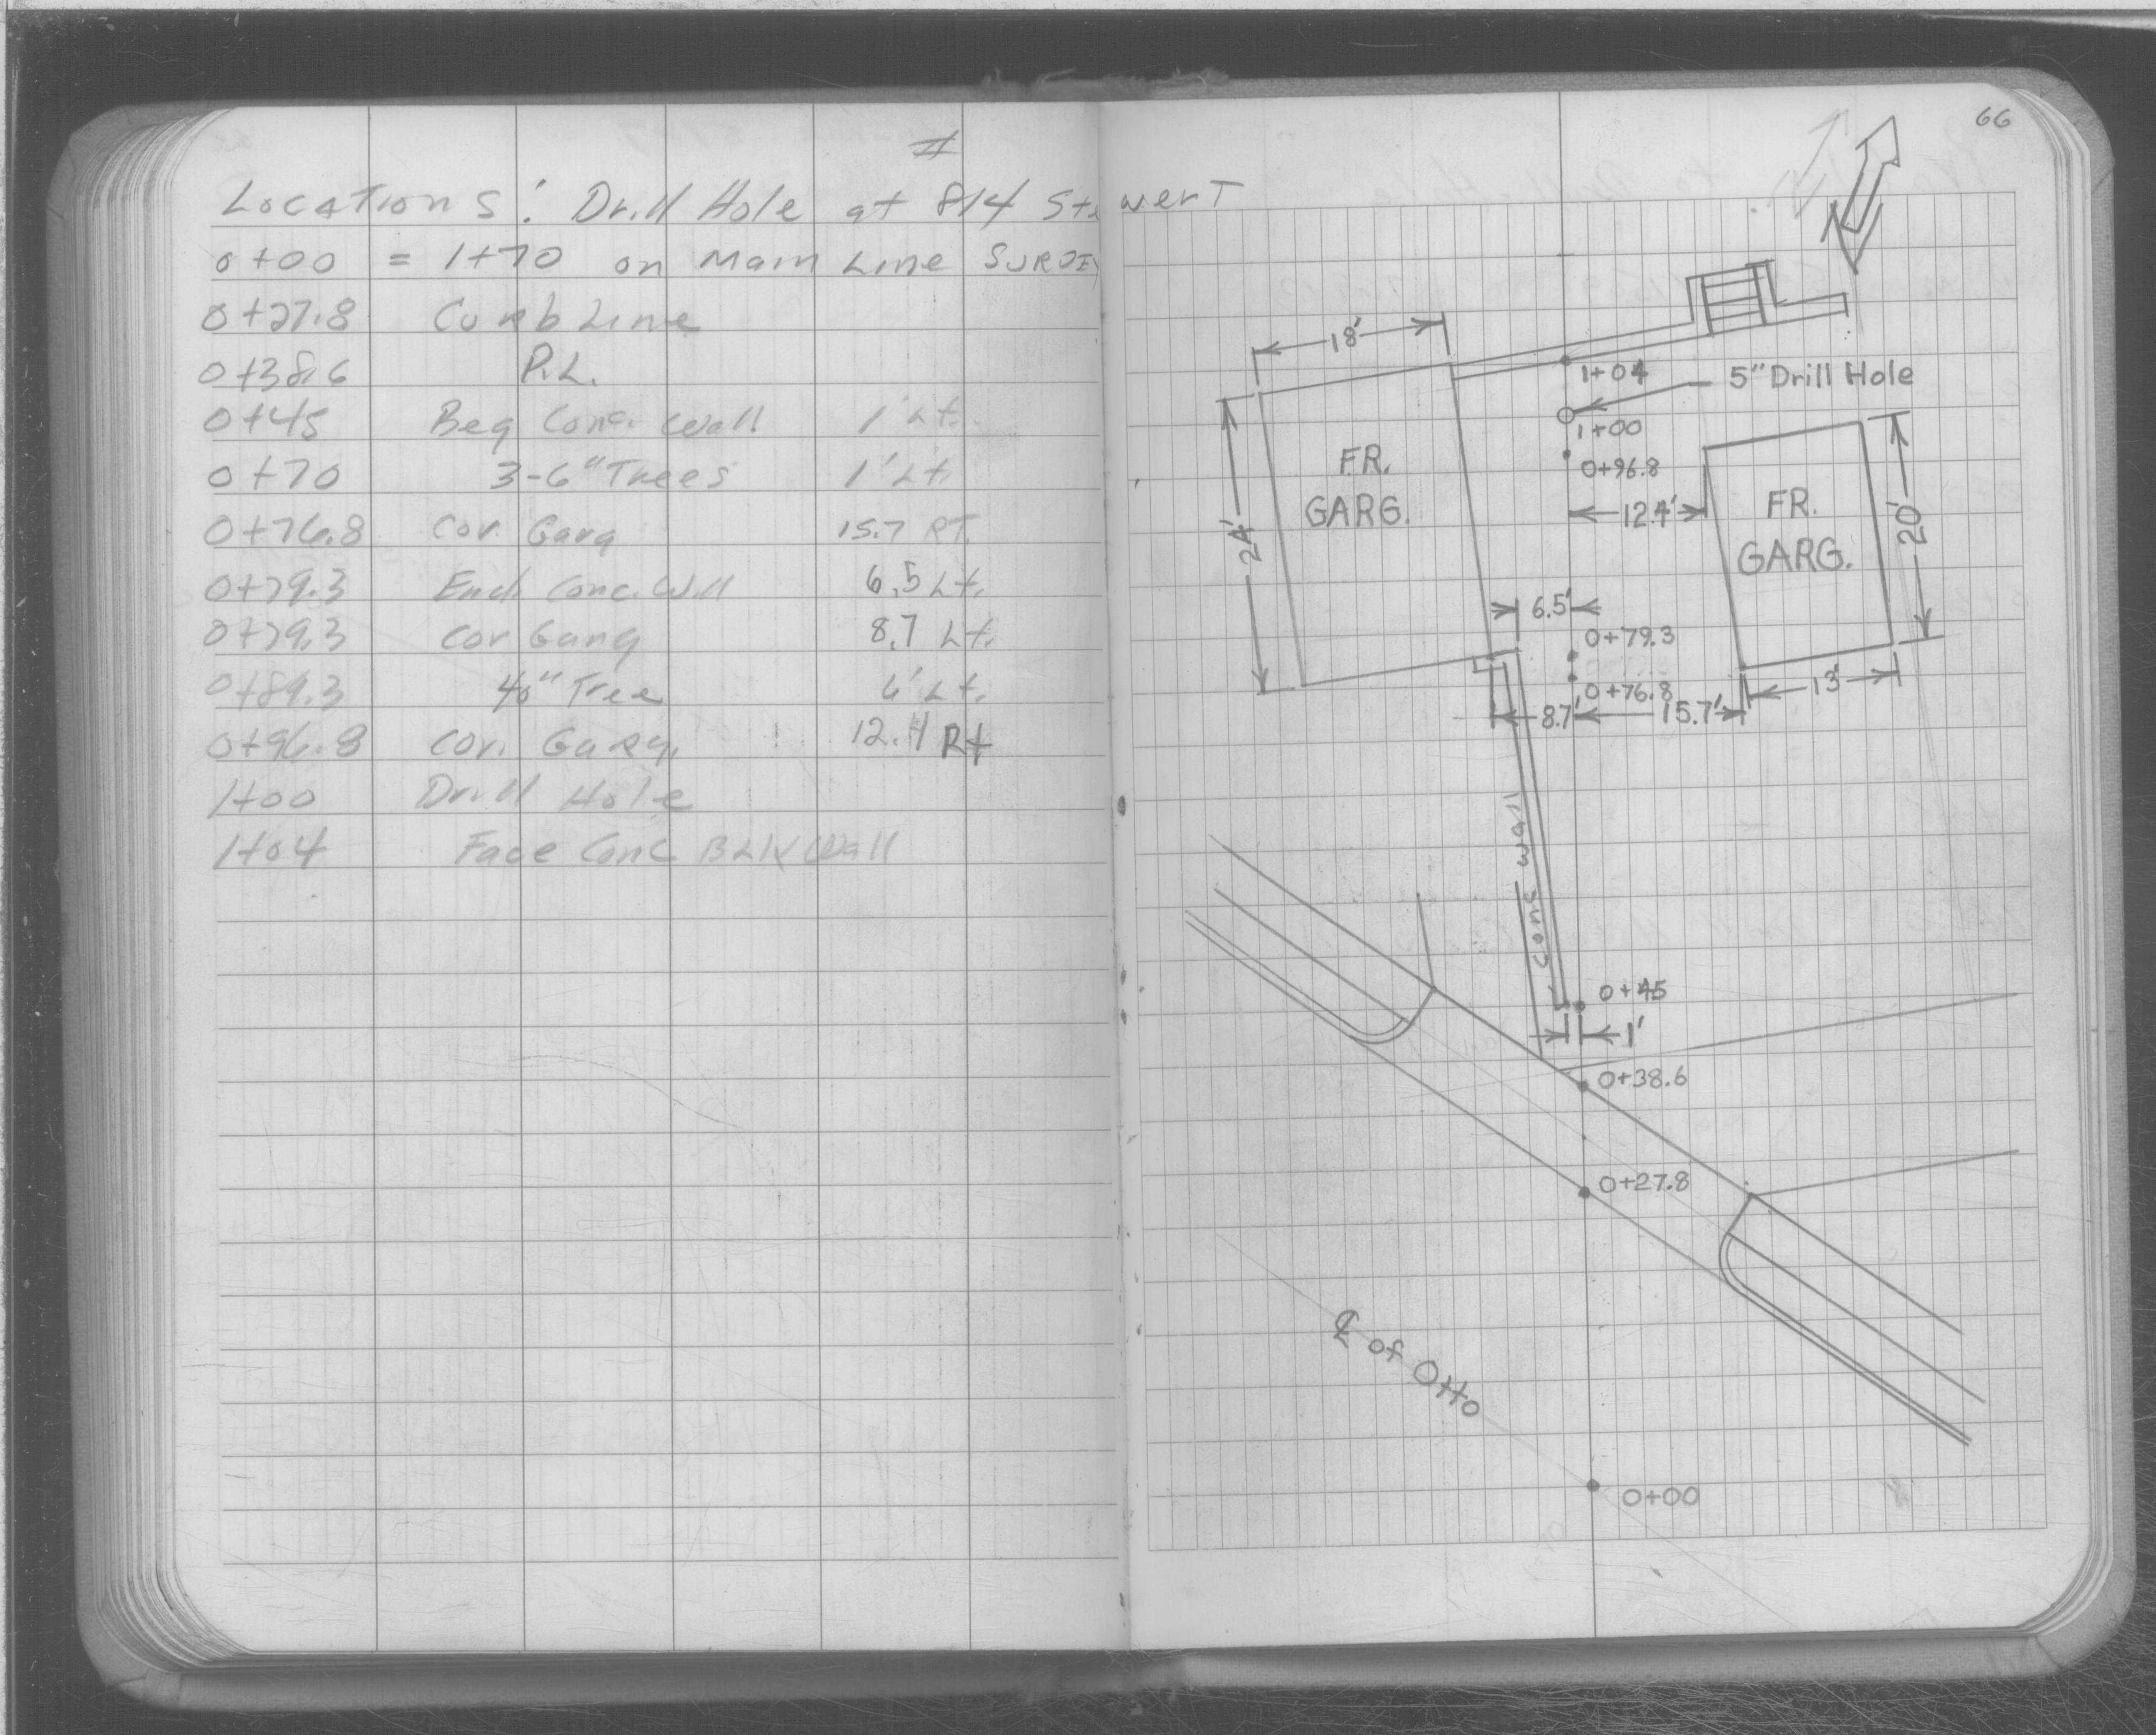 #
Locations: Drill Hole at 814 Stewert
0+00 = 1+70 on Main Line Survey
0+27.8 Curb Line
0+38.6 P.L.
0+45 Beg Conc. Wall 1' Lt.
0+70 3-6" Trees 1' Lt.
0+76.8 Cor. Garg 15.7 RT.
0+79.3 End Conc. Wall 6.5 Lt.
0+79.3 Cor Garg 8.7 Lt.
0+89.3 40" Tree 6' Lt.
0+96.8 Cor. Garg. 12.4 Rt
1+00 Drill Hole
1+04 Face Conc Blk Wall
66
18'
1+04
5" Drill Hole
1+00
0+96.8
FR.
GARG.
12.4'
FR.
GARG.
24'
20'
6.5'
0+79.3
0+76.8
8.7'
15.7'
13'
conc wall
0+45
1'
0+38.6
0+27.8
℄ of Otto
0+00